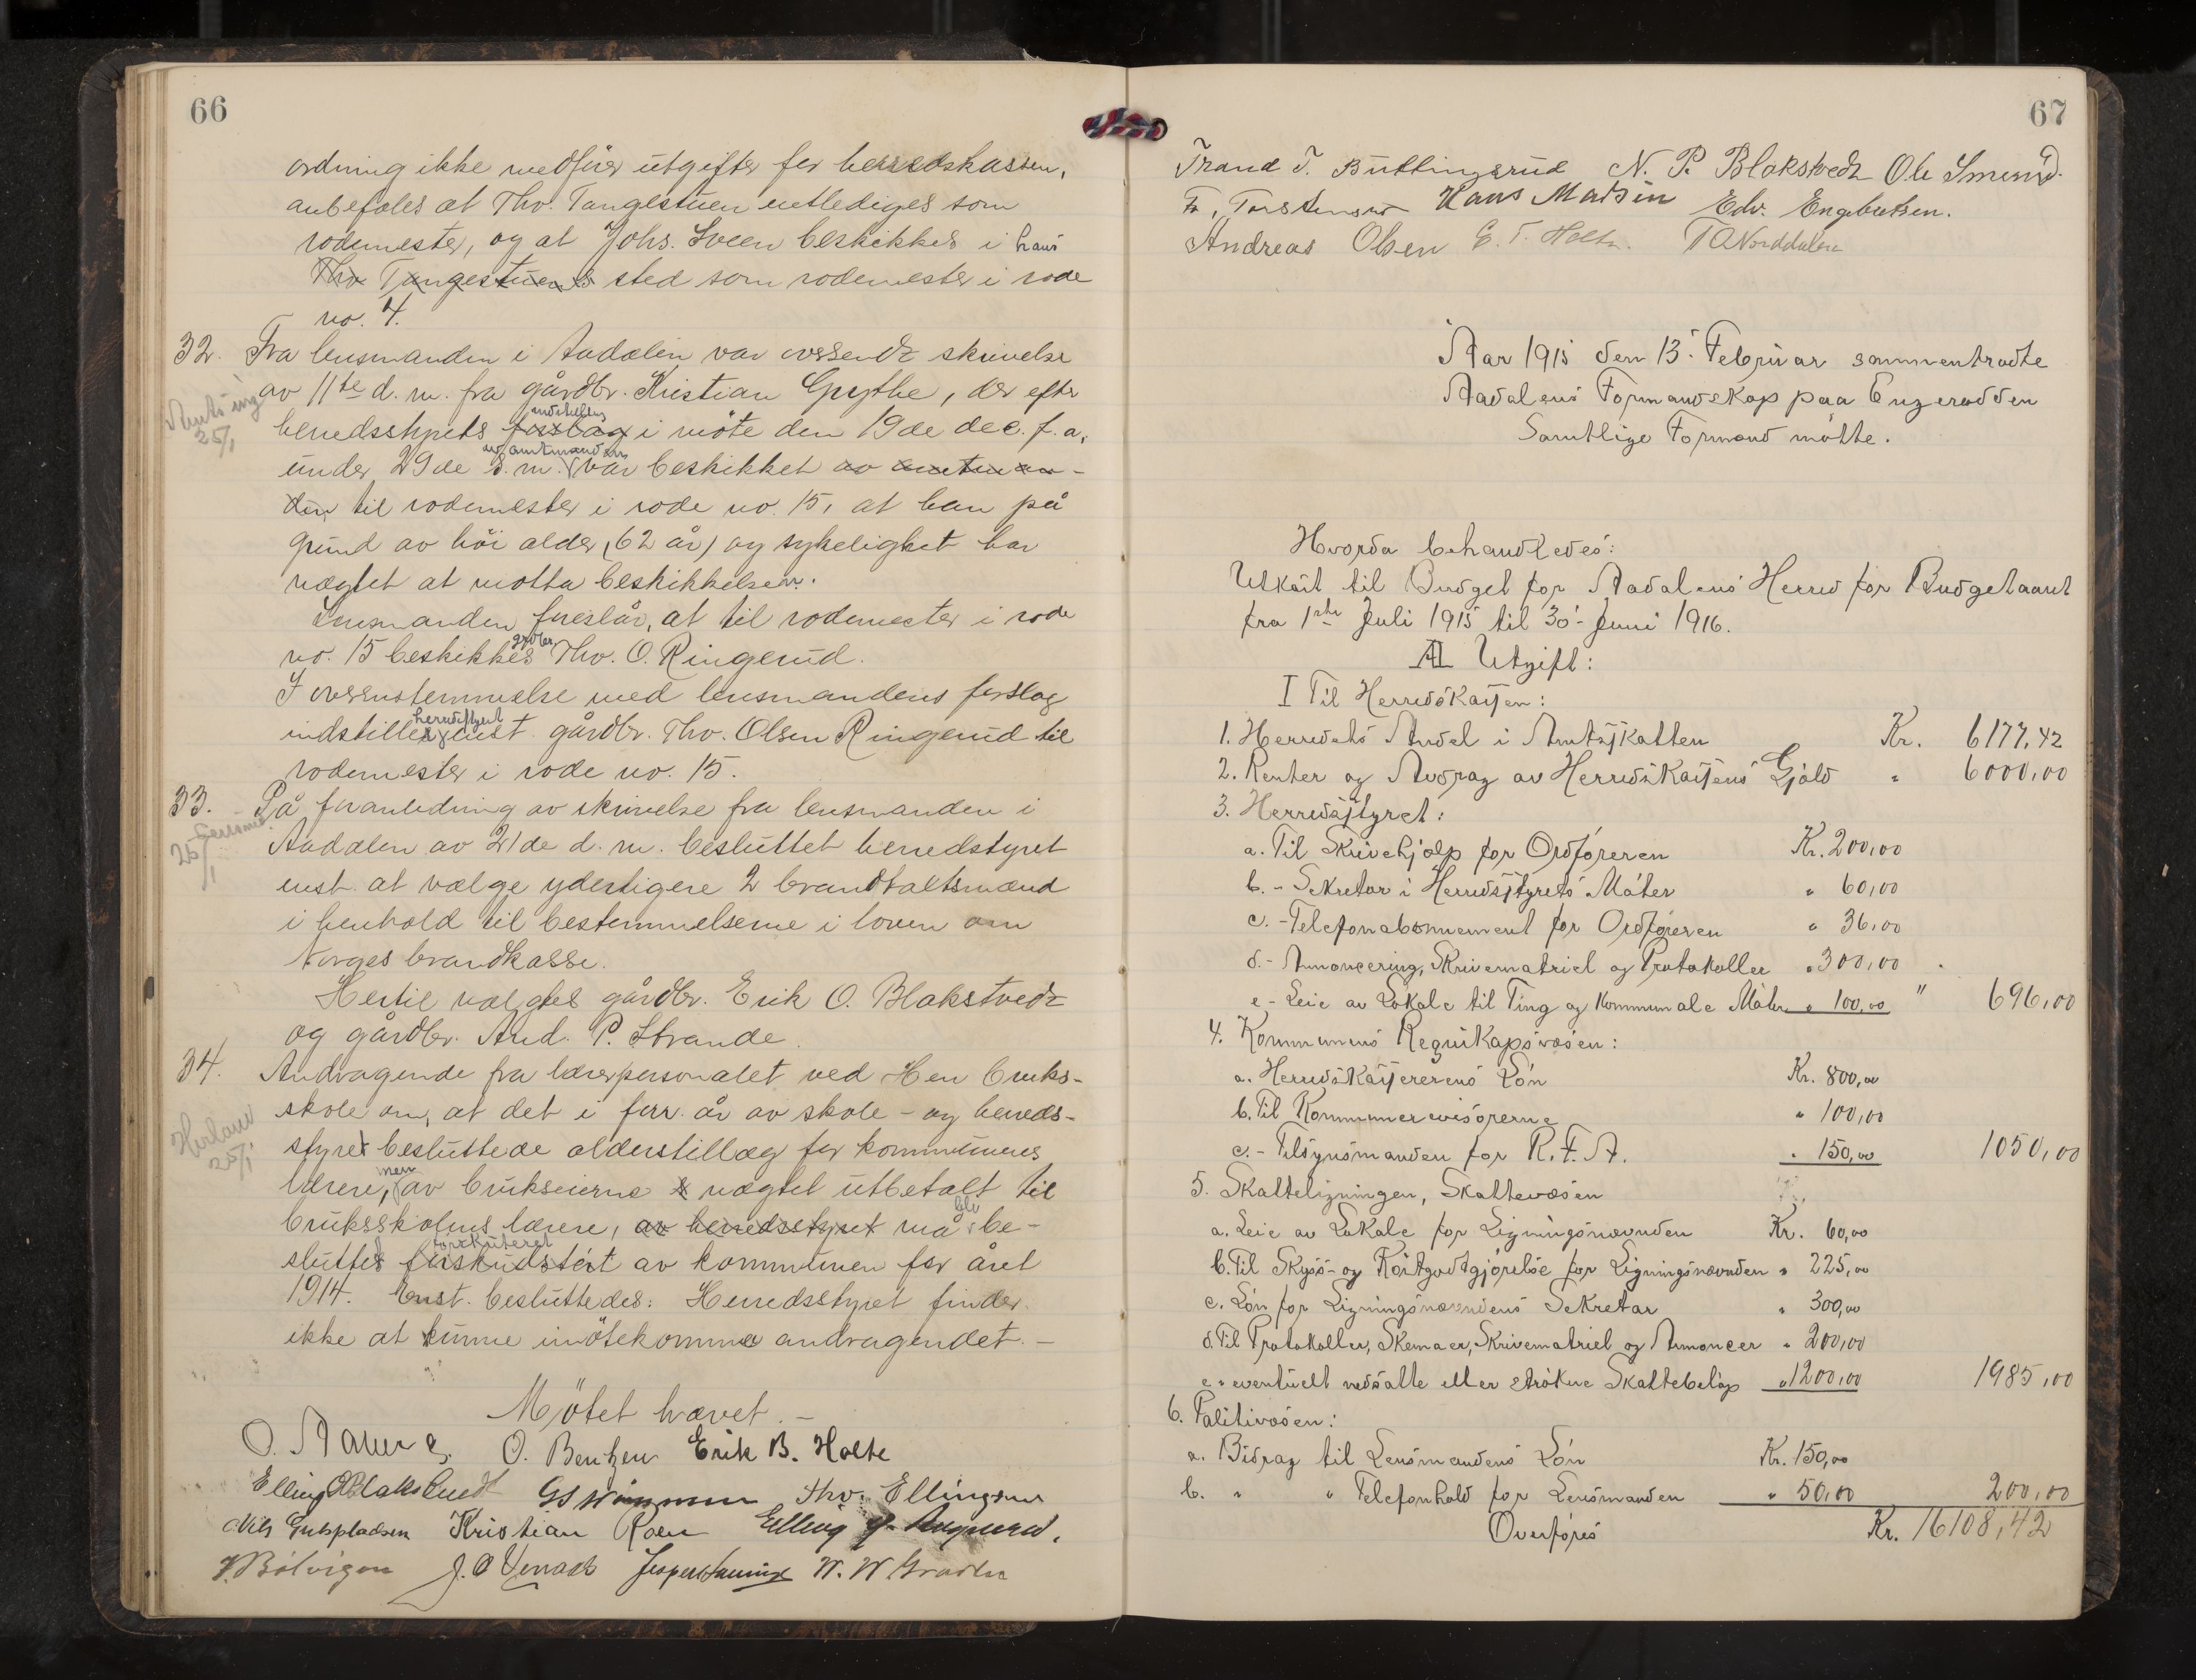 66
ordning ikke medfører utgifter for herredskassen,
anbefales at Thv. Tangestuen entlediges som
rodemester, og at Johs. Sveen beskikkes i hans
Thv Tangestuens sted som rodemester i rode
no. 4.
32. Fra lensmanden i Aadalen var oversendt skrivelse
av 11te d. m. fra gårdbr. Kristian Grythe, der efter
Amts ing 25/1
indstilling
herredsstyrets forslag i møte den 19de dec. f. a.
av amtmanden
under 29de s. m. var beskikket av amtman-
den til rodemester i rode no. 15, at han på
grund av høi alder (62 år) og sykelighet har
nægtet at motta beskikkelsen.
Lensmanden foreslår, at til rodemester i rode
gårdbr
no. 15 beskikkes Thv. O. Ringerud.
I overensstemmelse med lensmandens forslag
herredsstyret
indstilles enst. gårdbr. Thv. Olsen Ringerud til
rodemester i rode no. 15.
33. På foranledning av skrivelse fra lensmanden i
Lensmd. 25/1
Aadalen av 21de d. m. besluttet herredstyret
enst. at vælge yderligere 2 brandtakstmænd
i henhold til bestemmelserne i loven om
Norges brandkasse.
Hertil valgtes gårdbr. Erik O. Blakstvedt
og gårdbr. And. P. Strande.
34. Andragende fra lærerpersonalet ved Hen bruks-
skole om, at det i forr. år av skole- og herreds-
25/1
styret besluttede alderstillæg for kommunens
men
lærere, av brukseierne nægtet utbetalt til
blir
bruksskolens lærere, av herredsstyret må be-
forskuteret
sluttet forskudstért av kommunen for året
1914. Enst. besluttedes: Herredsstyret finder
ikke at kunne imøtekomme andragendet. –
Møtet hævet. –
O. O. Bentzen Erik B. Holte
Elling Thv. Ellingsen
Nils Gulspladsen Kristian Roen Elling
W. W. Graden
67
Trand T. Buttingsrud N. P. Blakstvedt Ole
Fr. Torstensrud Hans Madsen Edv. Engebretsen.
Andreas Olsen E. T. Holte. T O Norddalen
Aar 1915 den 13. Februar sammentraadte
Aadalens Formandskap paa Engerodden
Samtlige Formænd møtte.
Hvorda behandledes:
Utkast til Budget for Aadalens Herred for Budgetaaret
fra 1ste Juli 1915 til 30. Juni 1916.
A Utgift:
I Til Herredskassen:
1. Herredets Andel i Amtsskatten Kr. 6177,42
2. Renter og Avdrag av Herredskassens Gjæld " 6000,00
3. Herredsstyret:
a. Til Skrivehjælp for Ordføreren Kr. 200,00
b. - Sekretær i Herredsstyrets Møter " 60,00
c. - Telefonabonnement for Ordføreren " 36,00
d. - Annoncering, Skrivematriel og Protokoller " 300,00
e - Leie av Lokale til Ting og Kommunale Møter " 100,00 " 696,00
4. Kommunens Regnskapsvæsen:
a. Herredskassererens Løn Kr. 800,00
b. Til Kommunerevisorerne " 100,00
c. - Tilsynsmanden for R.F.A. " 150,00 1050,00
5. Skatteligningen, Skattevæsen
a. Leie av Lokale for Ligningsnævnden Kr. 60,00
b. Til Skyss- og Kostgodtgjørelse for Ligningsnævnden " 225,00
c. Løn for Ligningsnævndens Sekretær " 300,00
d. Til Protokoller, Skemaer, Skrivematriel og Annoncer " 200,00
e " eventuelt nedsatte eller strøkne Skattebeløp " 1200,00 1985,00
6. Politivæsen:
a. Bidrag til Lensmandens Løn Kr. 150,00
b. " " Telefonhold for Lensmanden " 50,00 200,00
Overføres Kr. 16108,42